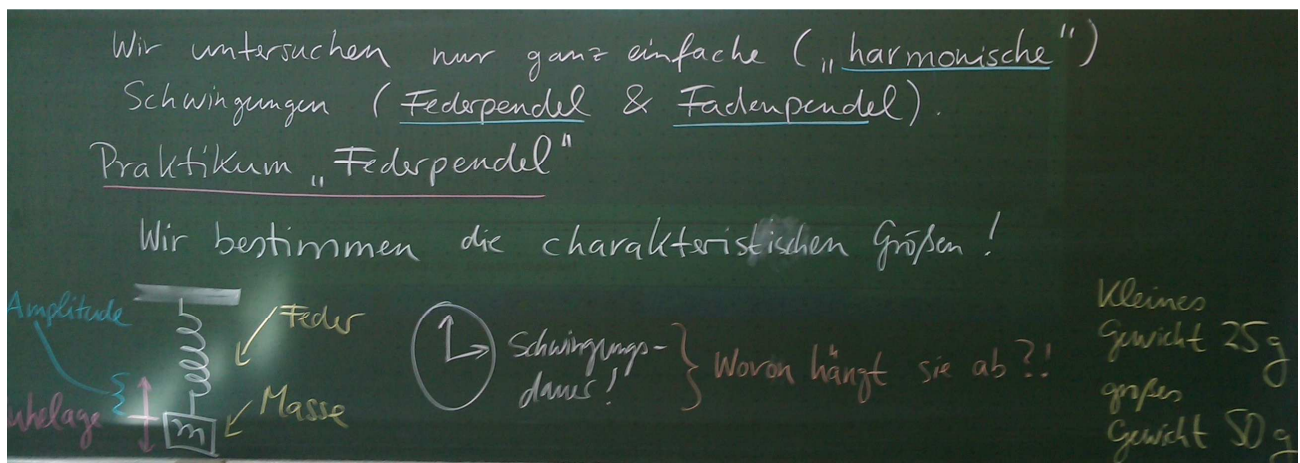 Wir untersuchen nur ganz einfache („harmonische")
Schwingungen (Federpendel & Fadenpendel).
Praktikum „Federpendel"
Wir bestimmen die charakteristischen Größen!
Amplitude
Feder
Masse
uhelage
m
Schwingungs-
dauer!
Wovon hängt sie ab?!
Kleines
Gewicht 25g
großes
Gewicht 50g